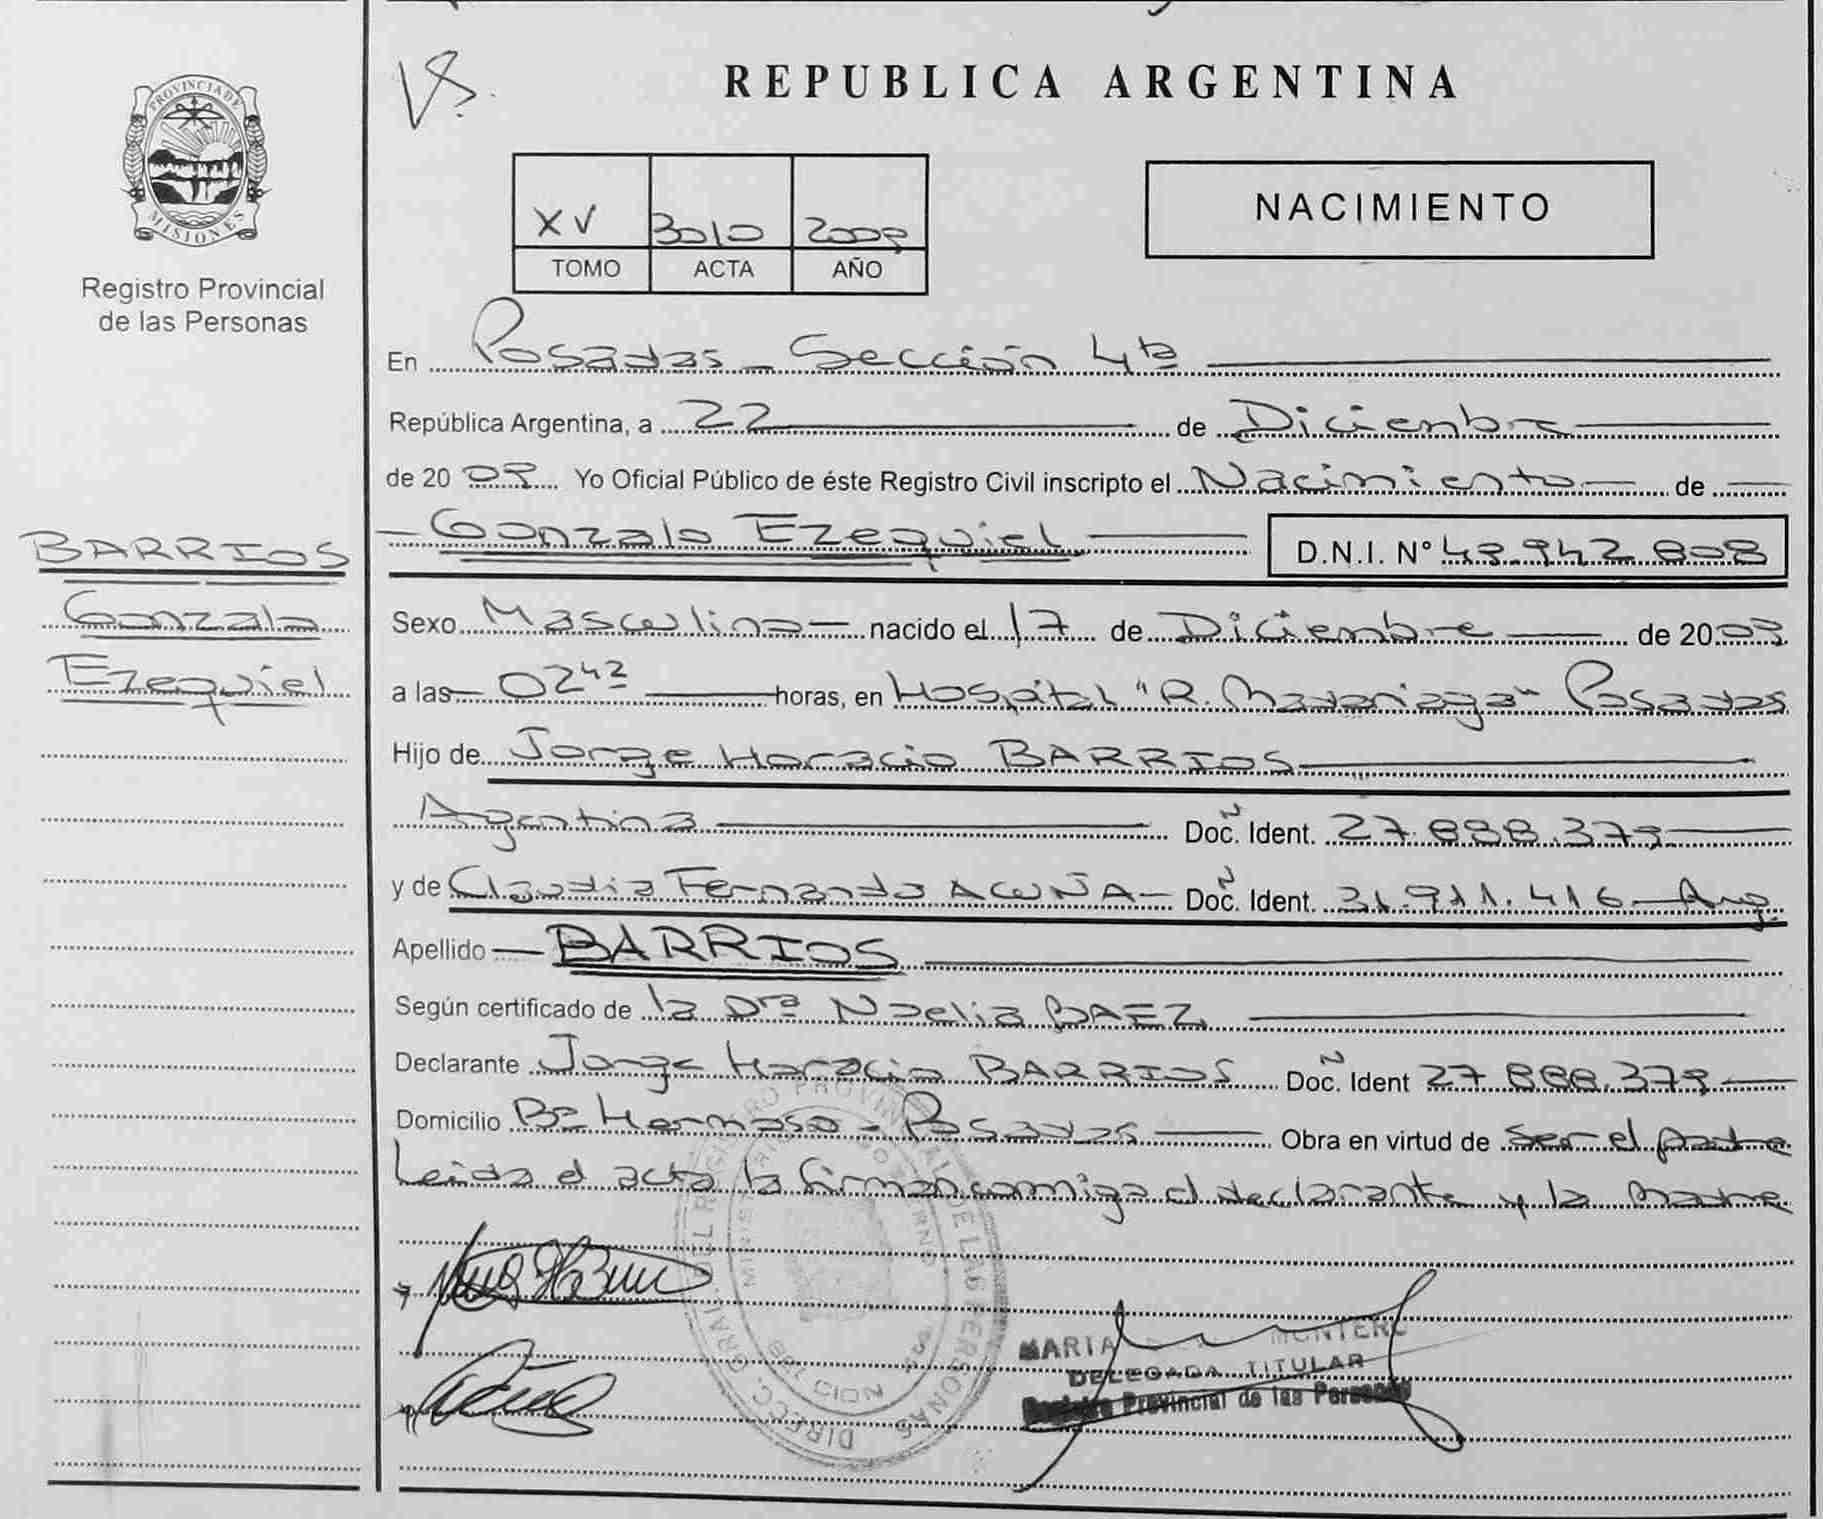 PROVINCIA DE
MISIONES
Registro Provincial
de las Personas
BARRIOS
Gonzalo
Ezequiel
REPUBLICA ARGENTINA
XV 3010 2009
TOMO ACTA AÑO
NACIMIENTO
En Posadas - Sección 4ta
República Argentina, a 22 de Diciembre
de 2009 Yo Oficial Público de éste Registro Civil inscripto el Nacimiento de
Gonzalo Ezequiel D.N.I. N° 49.942.808
Sexo Masculino nacido el 17 de Diciembre de 2009
a las 02 42 horas, en Hospital "R. Madariaga" Posadas
Hijo de Jorge Horacio BARRIOS
Argentina Doc. Ident. 27.888.379
y de Claudia Fernanda ACUÑA Doc. Ident. 31.911.416 Arg.
Apellido BARRIOS
Según certificado de la Dra Noelia BAEZ
Declarante Jorge Horacio BARRIOS Doc. Ident 27.888.379
Domicilio Bo Hermoso - Posadas Obra en virtud de ser el padre
Leida el acta la firman conmigo el declarante y la madre
MARIA MONTERO
DELEGADA TITULAR
Registro Provincial de las Personas